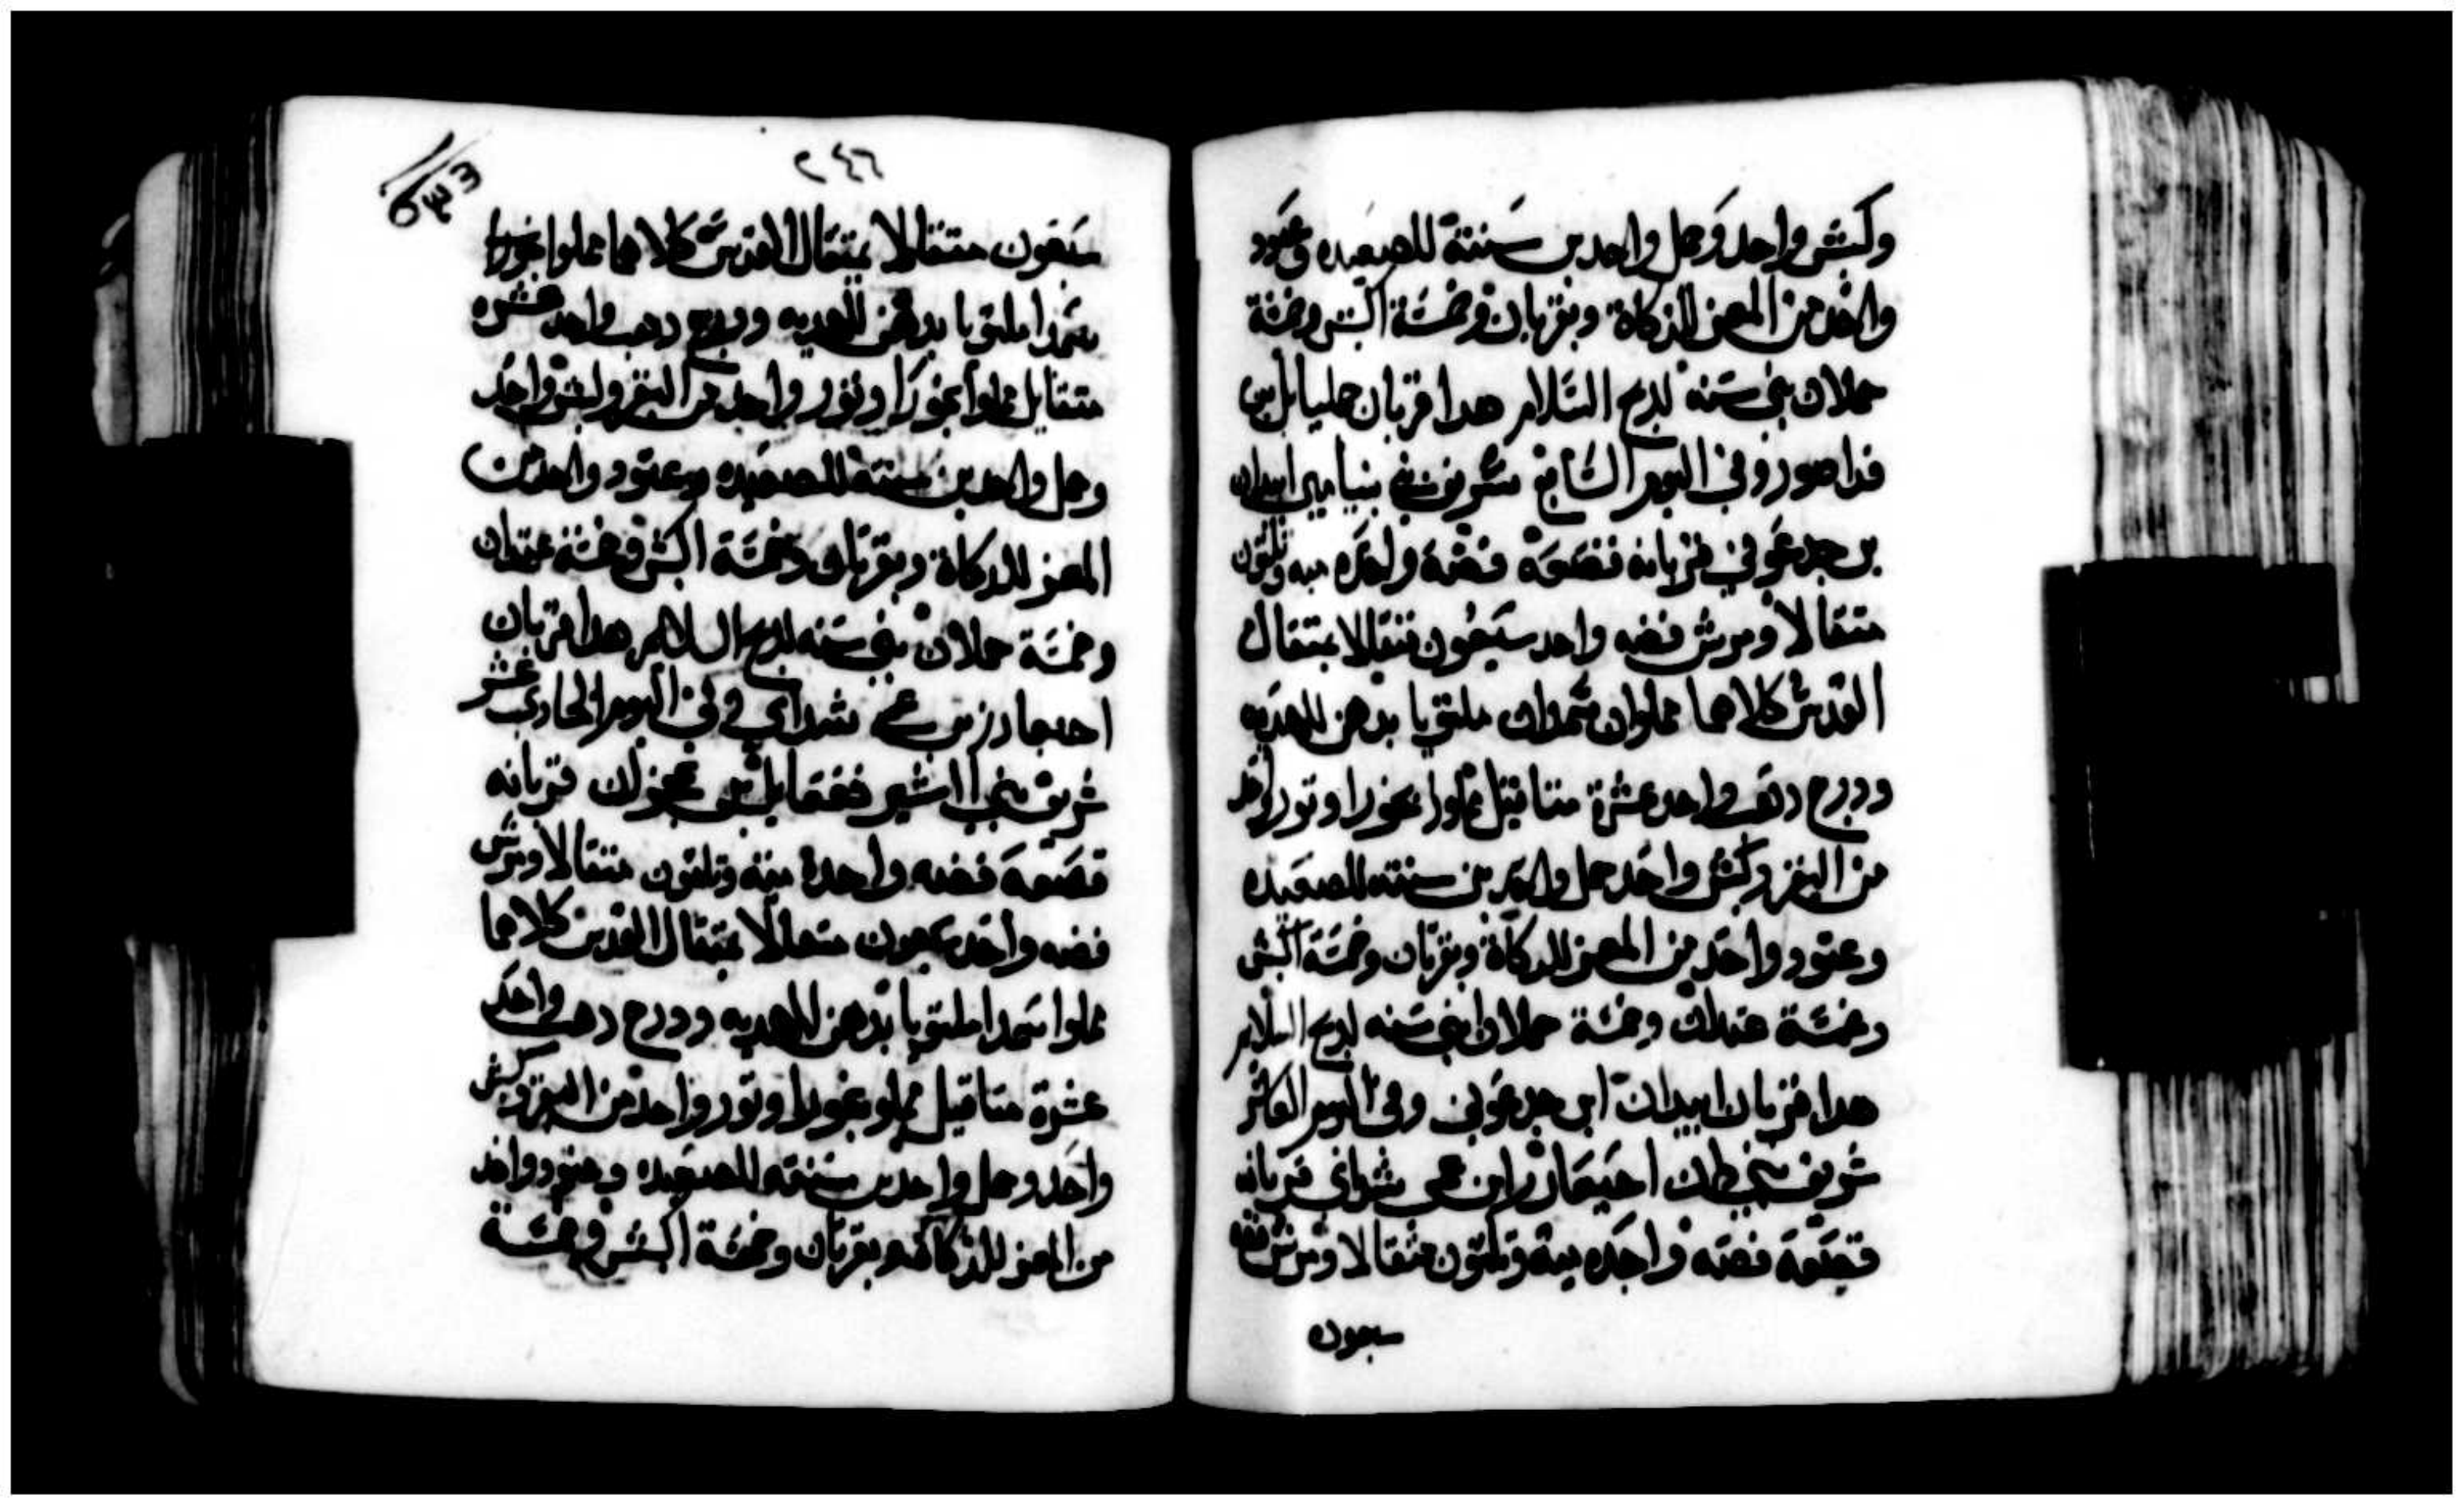 وكبش واحد وحمل واحد بن سنته للصعيده وعتود
واحد من المعز للذكاة وبقرتان وخمسة اكبش وخمسة
حملان بني سنه لدبح السلام هدا قربان جمليايل بن
فداصور وفي اليوم التاسع شريف بني بنيامين ابيدان
بن جدعوني قربانه قصعة فضة واحده ميه وتلتون
متقالا ومرش فضه واحد سبعون متقالا بمتقال
القدس كلاهما مملوان سمدا ملتوتا بدهن للهديه
ودرج دهب واحد عشرة متاقيل مملوا بخورا وتور واحد
من البقر وكبش واحد حمل واحد بن سنته للصعيده
وعتود واحد من المعز للدكاة وبقرتان وخمسة اكبش
وخمسة عتدان وخمسة حملان بني سنه لدبح السلام
هدا قربان ابيدان ابن جدعوني وفي اليوم العاشر
شريف بني دان احيعازر ابن عمي شداي قربانه
قصعة فضه واحده مية وتلتون متقالا ومرش فضه
سبعون
٢٤٦
سبعون متقالا بمتقال القدس كلاهما مملوا
سمدا ملتوتا بدهن للهديه ودرج دهب واحد عشره
متقايل مملوا بخورا وتور واحد من البقر وكبش واحد
وحمل واحد بن سنته للصعيده وعتود واحد من
المعز للدكاة وبقرتان وخمسة اكبش وخمسة عتدان
وخمسة حملان بني سنه لدبح السلام هدا قربان
احيعازر بن عمي شداي وفي اليوم الحادي عشر
شريف بني اشير فقعايل بن عخران قربانه
قصعة فضه واحدة ميه وتلتون متقالا ومرش
فضه واحد سبعون متقالا بمتقال القدس كلاهما
مملوا سمدا ملتوتا بدهن للهديه ودرج دهب واحد
عشرة متاقيل مملو بخورا وتور واحد من البقر وكبش
واحد وحمل واحد بن سنته للصعيده وعتود واحد
من المعز للدكاة وبقرتان وخمسة اكبش وخمسة